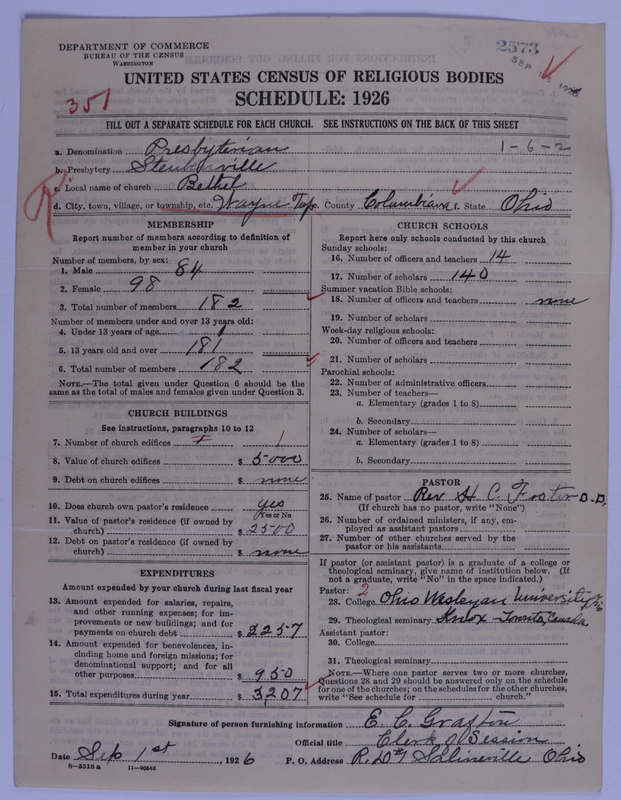 DEPARTMENT OF COMMERCE
BUREAU OF THE CENSUS
WASHINGTON
2573
SEP
351
UNITED STATES CENSUS OF RELIGIOUS BODIES
SCHEDULE: 1926
FILL OUT A SEPARATE SCHEDULE FOR EACH CHURCH. SEE INSTRUCTIONS ON THE BACK OF THIS SHEET
a. Denomination Presbyterian 1-6-2
b. Presbytery Steubenville
c. Local name of church Bethel
d. City, town, village, or township, etc. Wayne Twp. County Columbiana f. State Ohio
MEMBERSHIP
Report number of members according to definition of
member in your church
Number of members, by sex:
1. Male 84
2. Female 98
3. Total number of members 182
Number of members under and over 13 years old:
4. Under 13 years of age 1
5. 13 years old and over 181
6. Total number of members 182
NOTE.—The total given under Question 6 should be the
same as the total of males and females given under Question 3.
CHURCH BUILDINGS
See instructions, paragraphs 10 to 12
7. Number of church edifices 1
8. Value of church edifices $ 5000
9. Debt on church edifices $ none
10. Does church own pastor's residence yes
(Yes or No)
11. Value of pastor's residence (if owned by
church) $ 2500
12. Debt on pastor's residence (if owned by
church) $ none
EXPENDITURES
Amount expended by your church during last fiscal year
13. Amount expended for salaries, repairs,
and other running expenses; for im-
provements or new buildings; and for
payments on church debt $ 2257
14. Amount expended for benevolences, in-
cluding home and foreign missions; for
denominational support; and for all
other purposes $ 950
15. Total expenditures during year $ 3207
CHURCH SCHOOLS
Report here only schools conducted by this church
Sunday schools:
16. Number of officers and teachers 14
17. Number of scholars 140
Summer vacation Bible schools:
18. Number of officers and teachers none
19. Number of scholars
Week-day religious schools:
20. Number of officers and teachers
21. Number of scholars
Parochial schools:
22. Number of administrative officers
23. Number of teachers—
a. Elementary (grades 1 to 8)
b. Secondary
24. Number of scholars—
a. Elementary (grades 1 to 8)
b. Secondary
PASTOR
25. Name of pastor Rev H. C. Foster D.D.
(If church has no pastor, write "None")
26. Number of ordained ministers, if any, em-
ployed as assistant pastors
27. Number of other churches served by the
pastor or his assistants
If pastor (or assistant pastor) is a graduate of a college or
theological seminary, give name of institution below. (If
not a graduate, write "No" in the space indicated.)
Pastor: 2
28. College Ohio Wesleyan University Ohio
29. Theological seminary Knox Toronto, Canada
Assistant pastor:
30. College
31. Theological seminary
NOTE.—Where one pastor serves two or more churches,
Questions 28 and 29 should be answered only on the schedule
for one of the churches; on the schedules for the other churches,
write "See schedule for church."
Signature of person furnishing information E. C. Grafton
Official title Clerk of Session
Date Sep 1st, 1926 P. O. Address R. D. #1 Salineville Ohio
8—5518 a